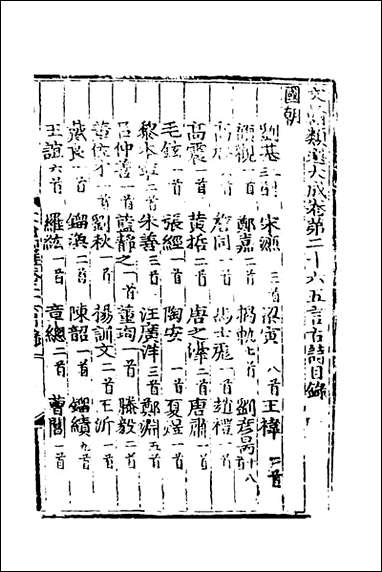 文翰類選大成卷第二十六五言古詩目錄
國朝
劉基三首 宋濂三首 梁寅八首 王褘二首
觀一首 鄭嘉二首 揭軌七首 劉彥昺十八
高 詹同一首 馬士飛一首 趙禮一首
高震一首 黃哲二首 唐之淳二首 唐肅一首
毛鉉一首 張經一首 陶安一首 夏煜一首
黎 二首 朱善三首 汪廣洋三首 鄭淵五首
呂仲善一首 藍靜之一首 董 一首 滕毅二首
董 一首 劉秋一首 楊訓文二首 王沂一首
戴良一首 鎦漢二首 陳韶一首 鎦績九首
王誼六首 羅紘一首 章 二首 曹閱一首